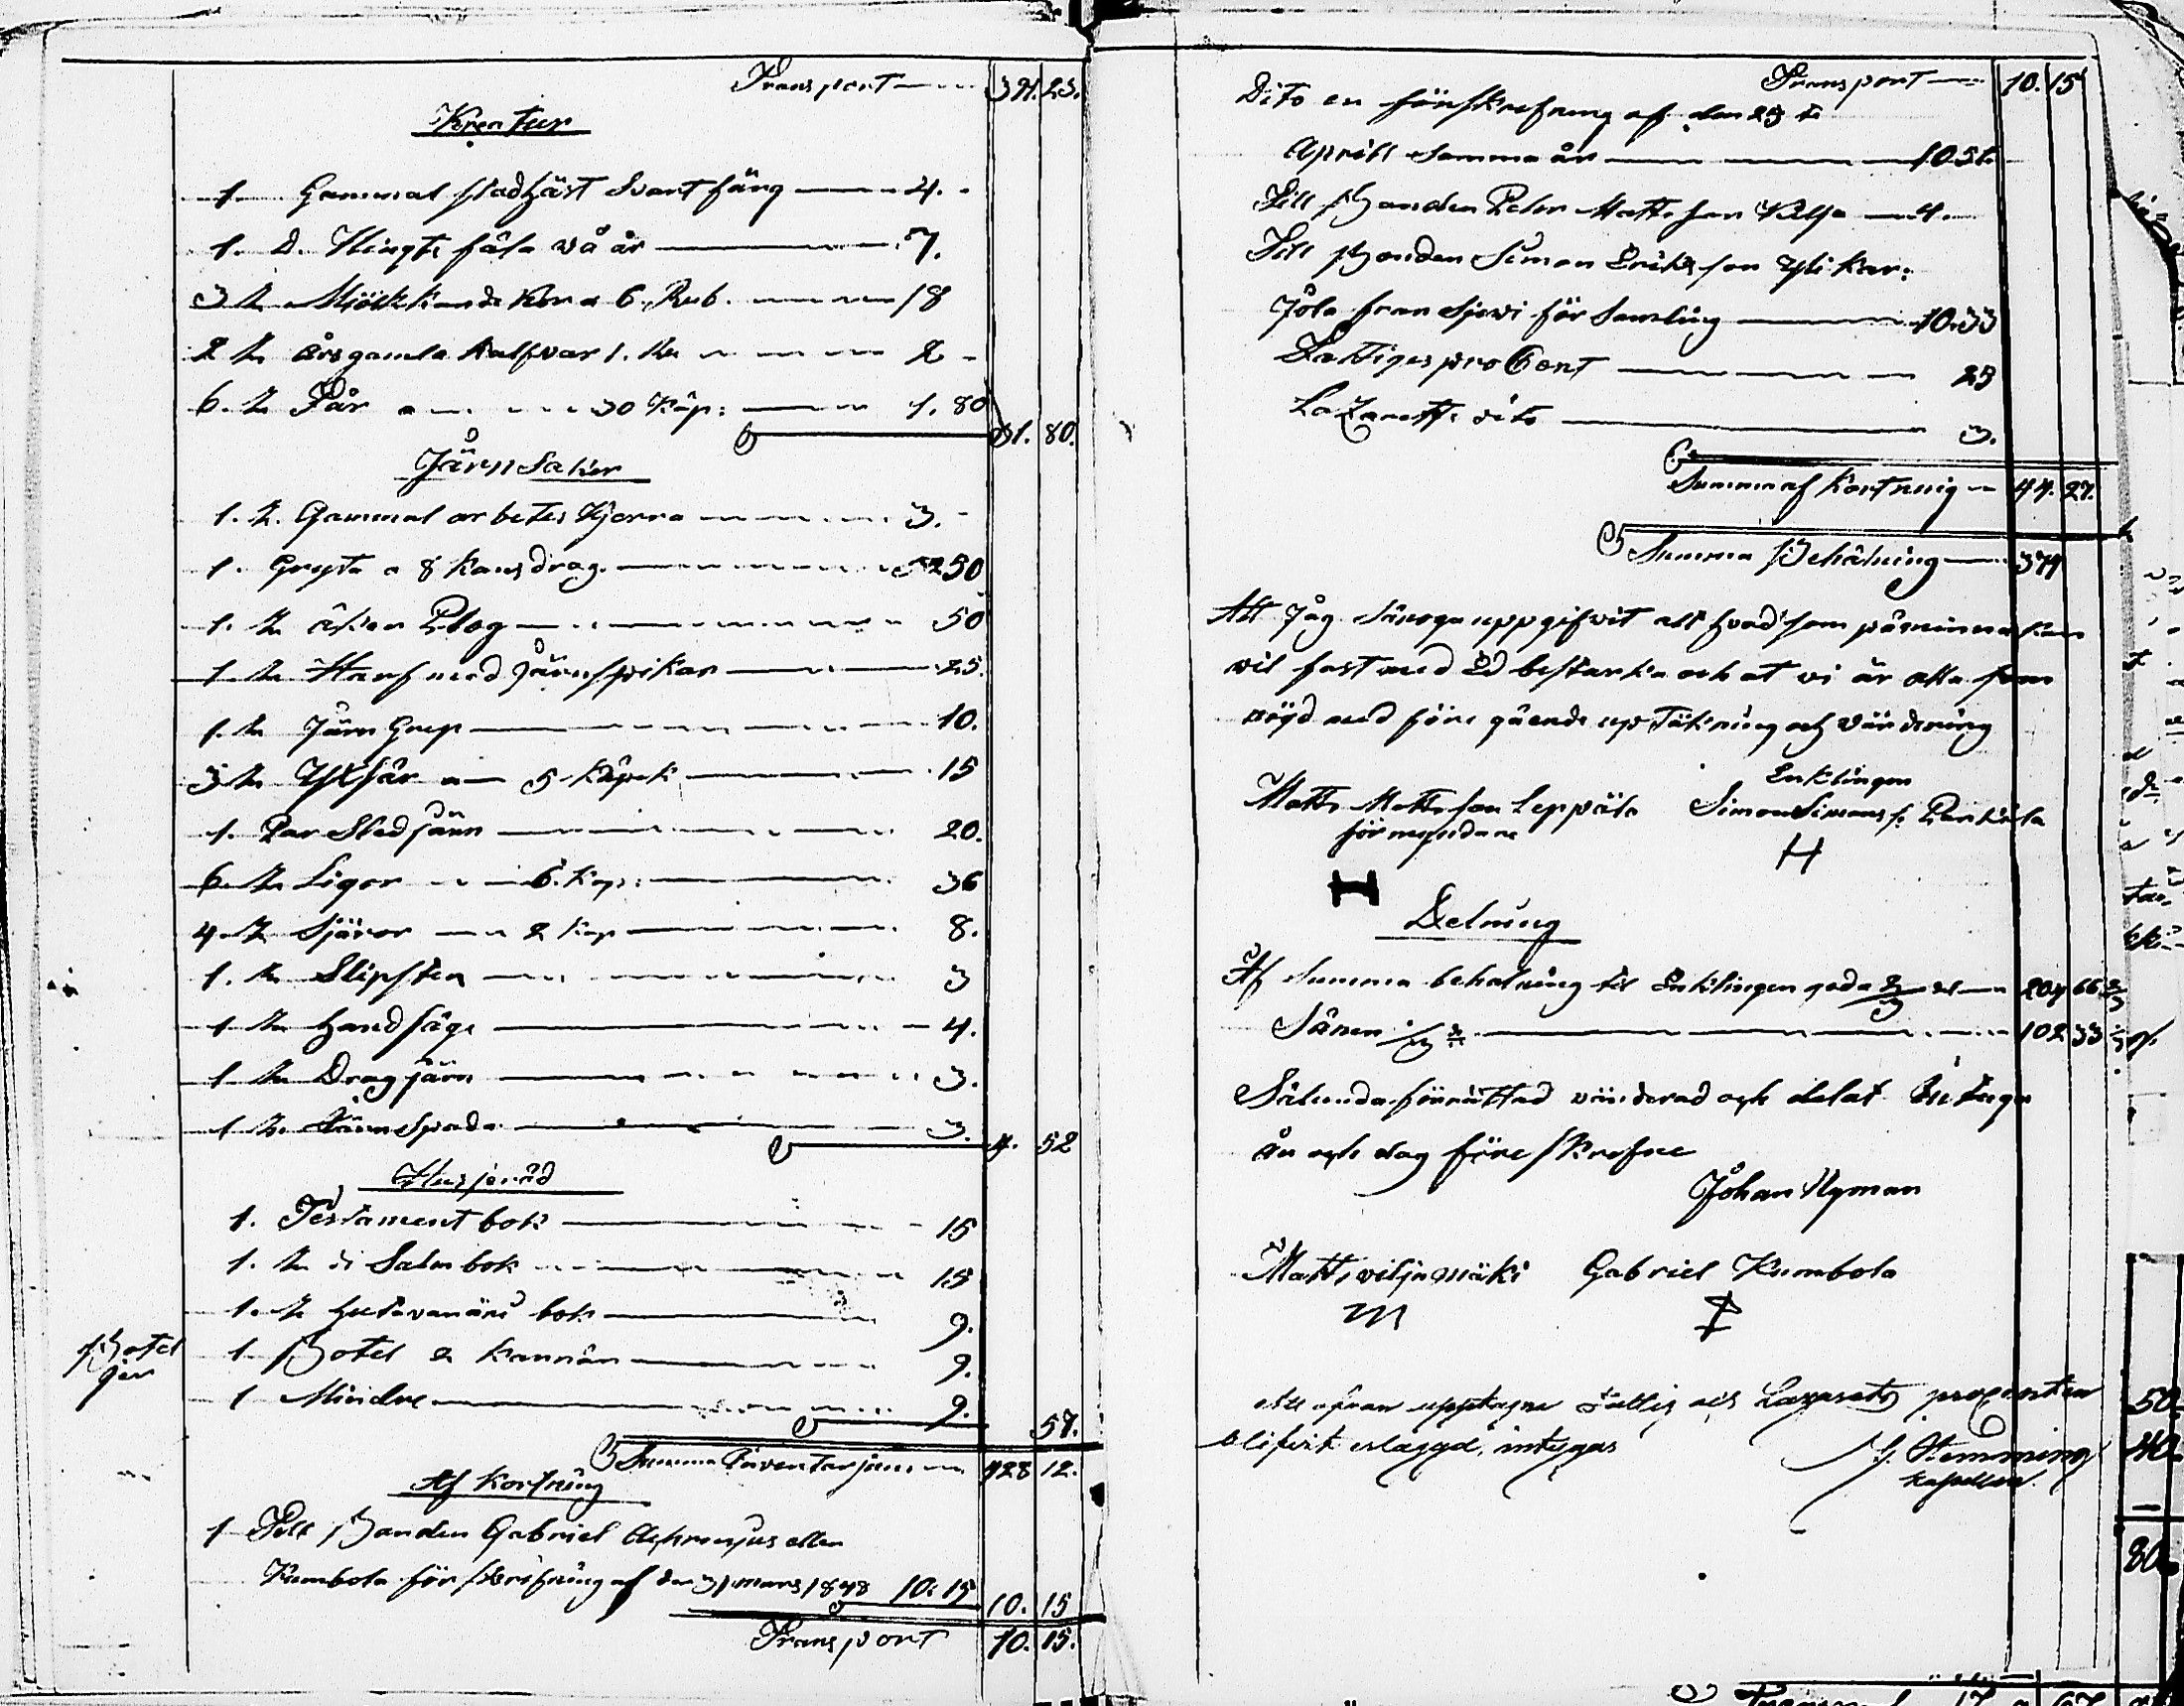 Transport 391. 23.
Kreatur
1 Gammal stadhäst Svart färg 4.
1. D. Wingts fåla två år 7.
3 st. Mjölkkande Kor a 6. Rub. 18
2 st årsgamla kalfvar 1. Ru 2
6. st Får a 30 Kop: 1. 80
31. 80.
Järn Saker
1. st. Gammal arbetes Kjerra 3.
1. Gryta a 8 kans drag. 50
1. st åker Plog 50
1 st Harf med Järnspikar 25.
1. st Järn Grep 10.
3 st Yxsår a 5 Kåpek 15
1. Par Sledjärn 20.
6 st Ligor a 6. Kop: 36
4 st Sjäror a 2 Kop 8.
1. st Slipsten 3
1 st handsåga 4.
1 st Dragjärn 3.
1 st. Järnspada 3.
4. 52
Husjeråd
1. Testament bok 15
1. st Salm bok 15
1. st bok 9.
Botel
jer
1 Botel 2 kannån 9.
1 Mindre 9.
57.
Summa Inventarjum 428 12.
Af kortning
1 Till Bonden Gabriel eller
Kumbola för skrifning af den 31 mars 1848 10: 15 10. 15
Transport 10. 15.
Transport 10. 15
Dito en förskrefning af den 23 te
Aprill samma år
Till Bonden Peter Mattsson 4.
Till Bonden Simon Eriksson Yli kar:
Jöla fran Sjevi för samling 10.33
Fattiges pro Cent 23
Lazaretts dito 3.
Summa af Kortning 44. 27.
Summa Behålning
Att Jåg Sånoga uppgifvit alt hvad som påminna kan
vil fast med Ed bestarka och at vi är alla
nöyd med före gående up täkning och värdering
Enklingen
Matts Mattsson Leppälä Simon Simons s. Penttila
förmyndare
Delning
Af Summa behalning til Enklingen goda 2/3 66 2/3
Sånen 1/3 102 33 1/3
Sålunda förrättad värderad och delat Intyga
år och dag före skrefne
Johan Nyman
Matts viljamäki Gabriel Kumbola
Att ofvan upptagne fattig och Lazaretts procenten
blifvit erlaggd, intygas J. Hemming
Kapellan